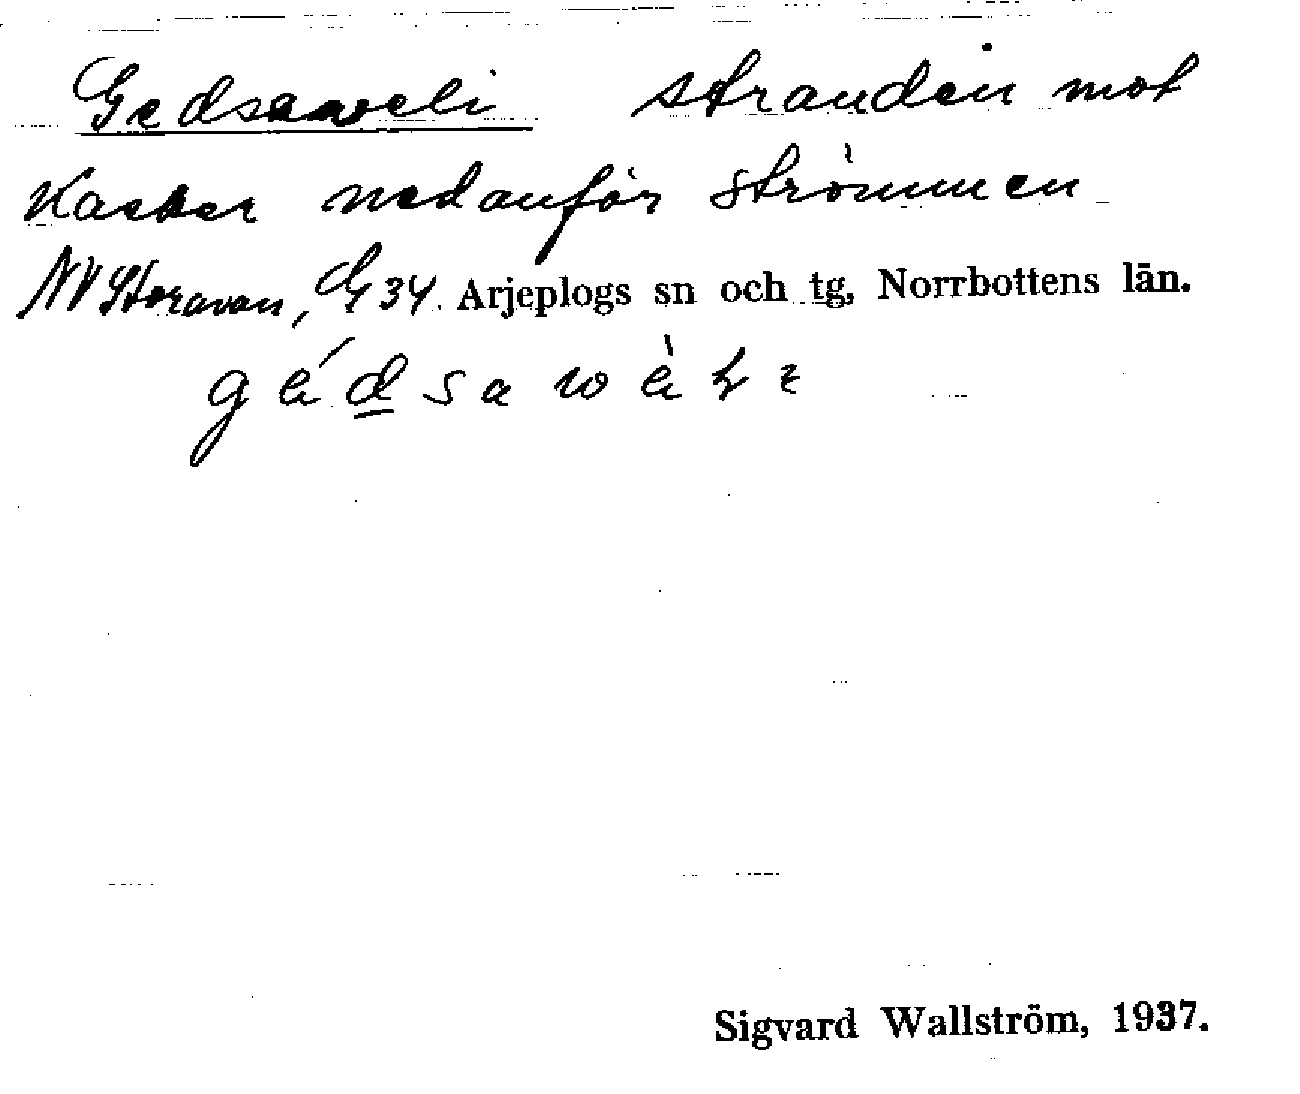 Gedsaweli stranden mot
Kasker nedanför strömmen
NV Storavan, G 34. Arjeplogs sn och tg, Norrbottens län.
Sigvard Wallström, 1937.